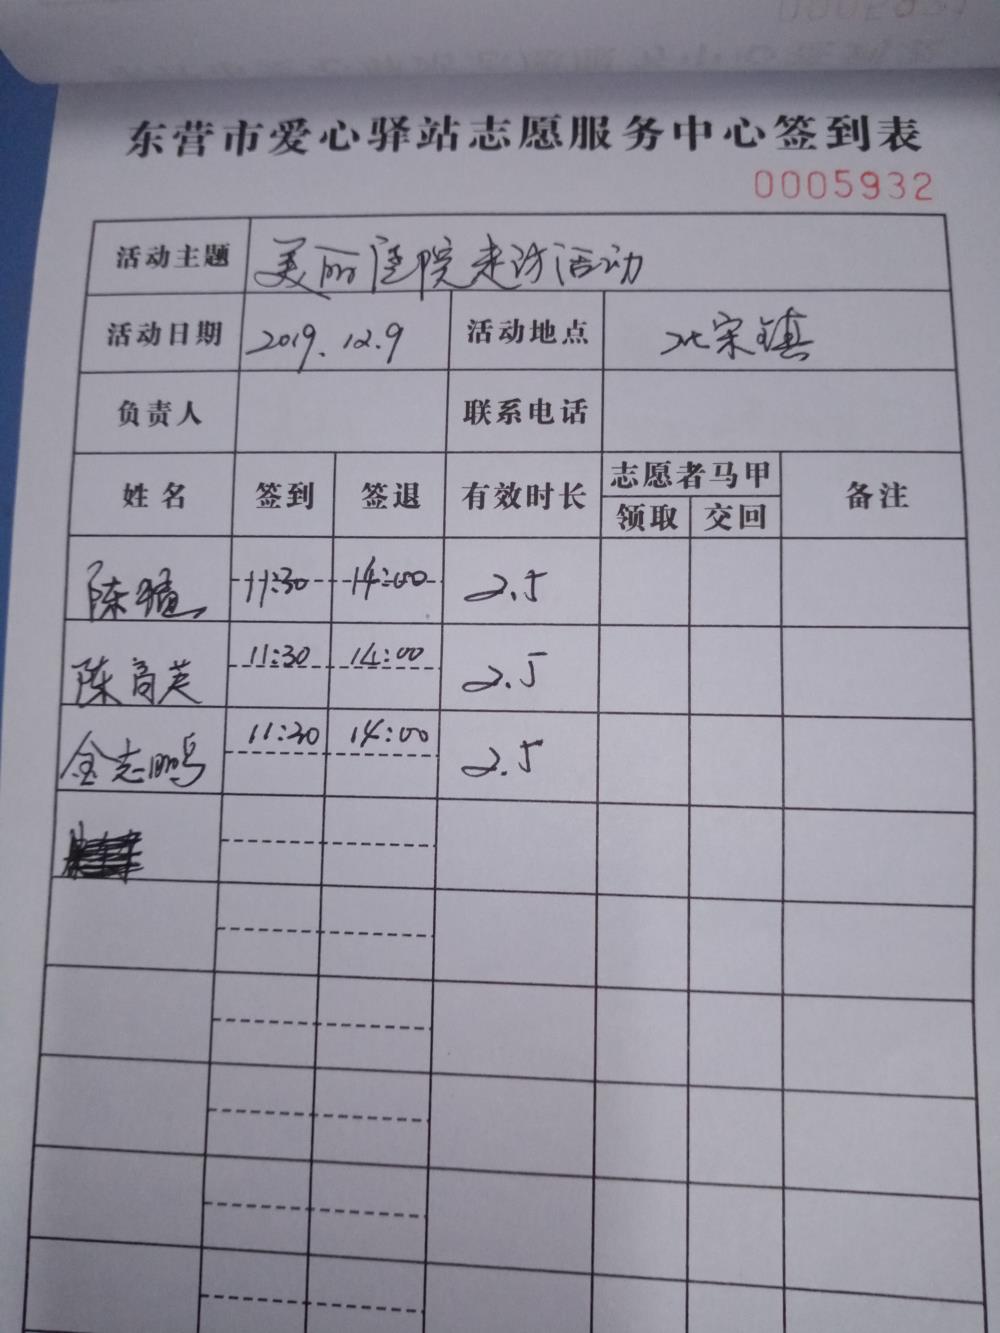 东营市爱心驿站志愿服务中心签到表
0005932
活动主题 美丽庭院走访活动
活动日期 2019.12.9 活动地点 北宋镇
负责人 联系电话
姓名 签到 签退 有效时长 志愿者马甲 备注
领取 交回
陈 11:30 14:00 2.5
陈育英 11:30 14:00 2.5
金志鹏 11:30 14:00 2.5